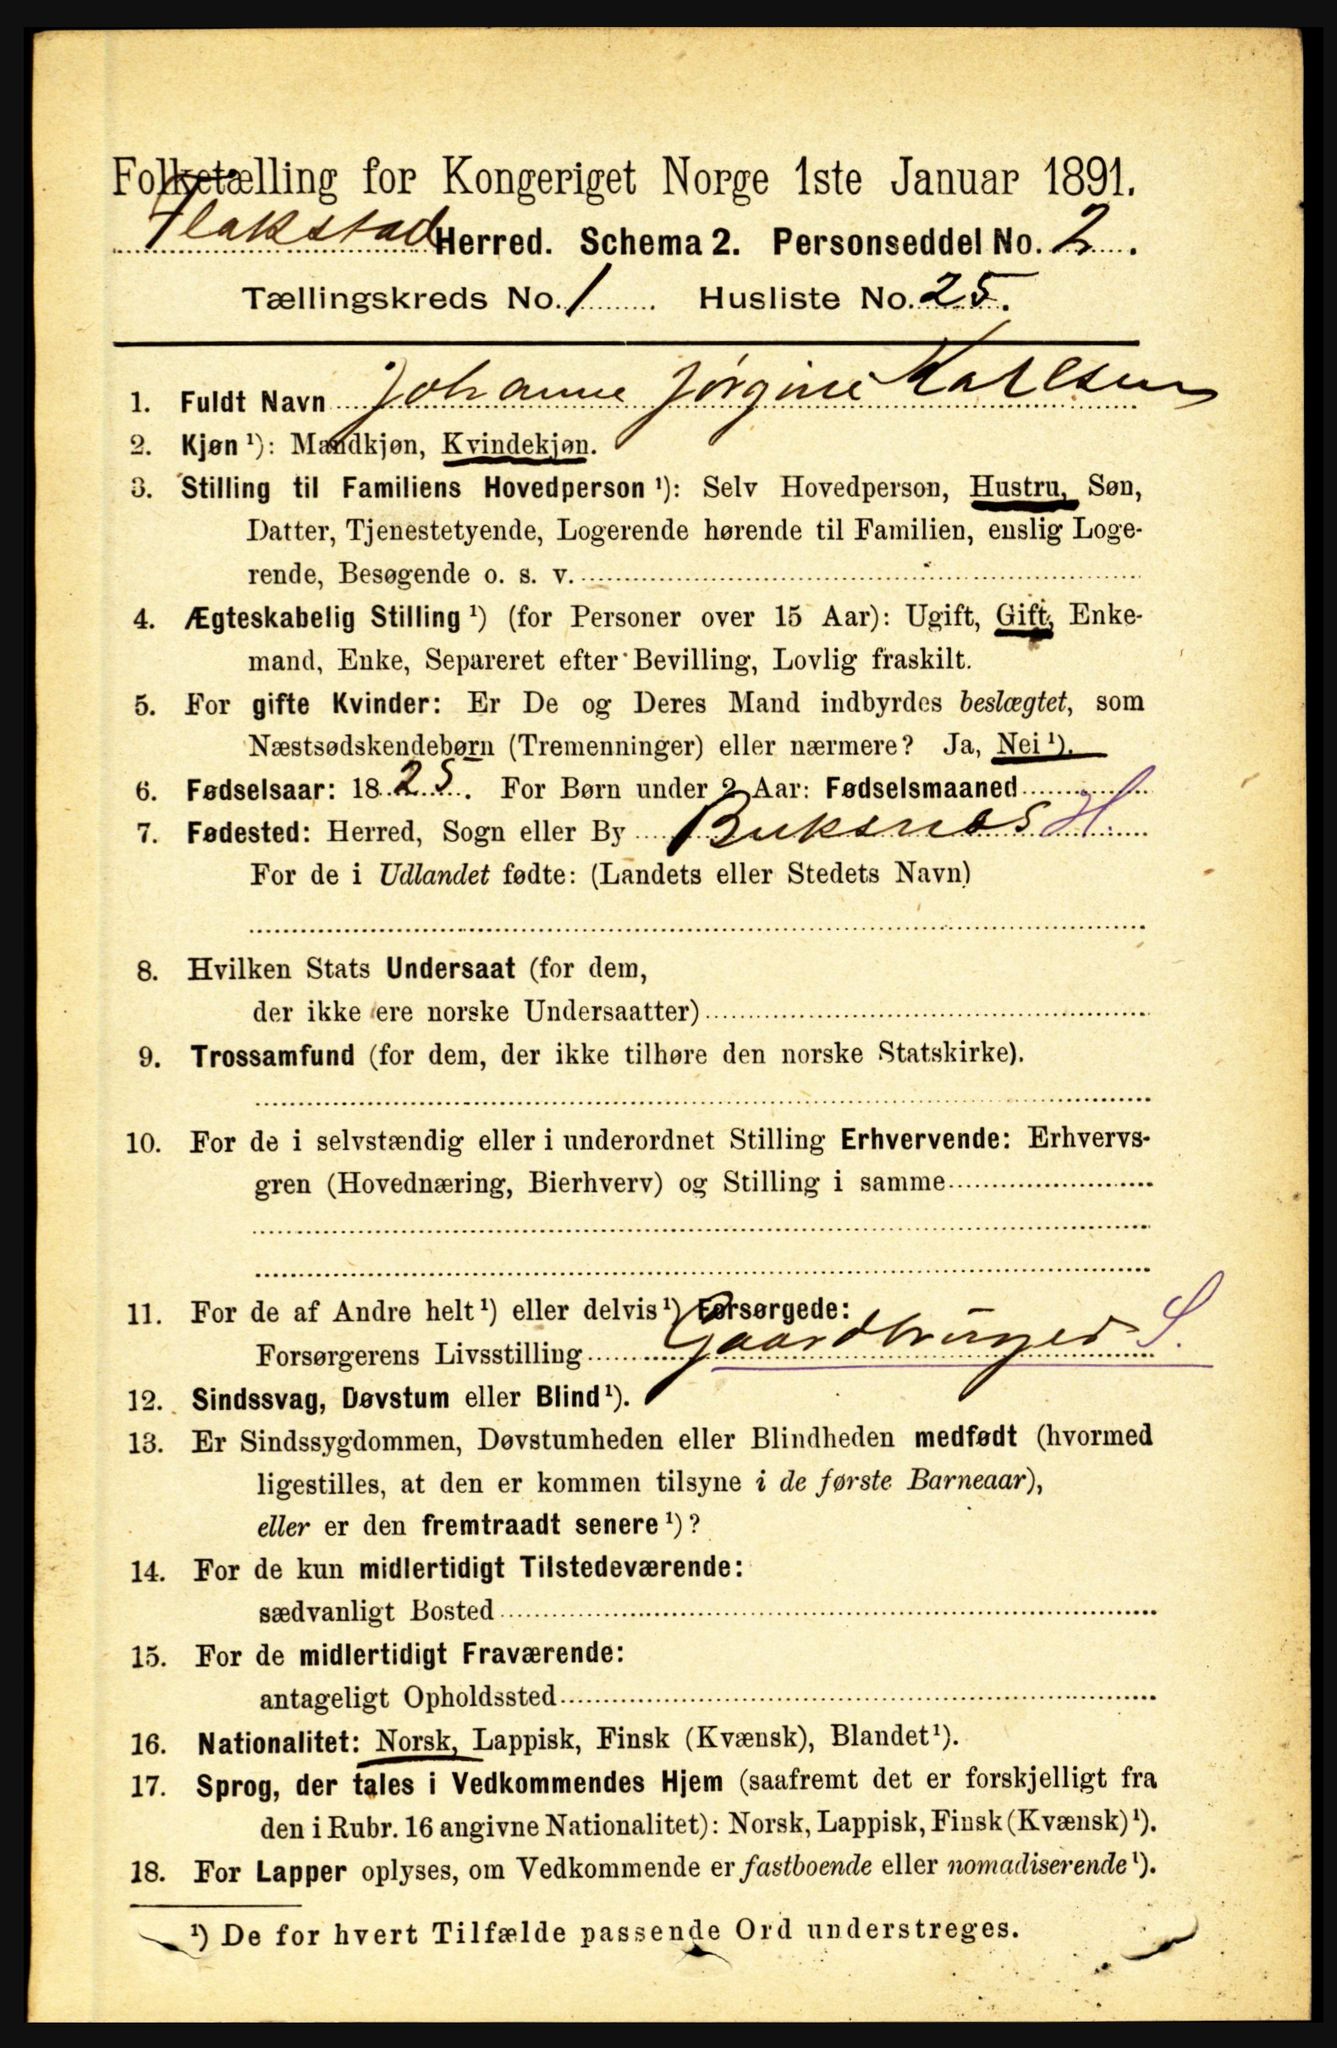 Folketælling for Kongeriget Norge 1ste Januar 1891.
Flakstad Herred. Schema 2. Personseddel No. 2.
Tællingskreds No. 1 Husliste No. 25.
1. Fuldt Navn Johanne Jørgine Karlsen
2. Kjøn ¹): Mandkjøn, Kvindekjøn.
3. Stilling til Familiens Hovedperson ¹): Selv Hovedperson, Hustru, Søn,
Datter, Tjenestetyende, Logerende hørende til Familien, enslig Loge-
rende, Besøgende o. s. v.
4. Ægteskabelig Stilling ¹) (for Personer over 15 Aar): Ugift, Gift, Enke-
mand, Enke, Separeret efter Bevilling, Lovlig fraskilt.
5. For gifte Kvinder: Er De og Deres Mand indbyrdes beslægtet, som
Næstsødskendebørn (Tremenninger) eller nærmere? Ja, Nei ¹).
6. Fødselsaar: 1825. For Børn under 2 Aar: Fødselsmaaned
7. Fødested: Herred, Sogn eller By Buksnes H.
For de i Udlandet fødte: (Landets eller Stedets Navn)
8. Hvilken Stats Undersaat (for dem,
der ikke ere norske Undersaatter)
9. Trossamfund (for dem, der ikke tilhøre den norske Statskirke).
10. For de i selvstændig eller i underordnet Stilling Erhvervende: Erhvervs-
gren (Hovednæring, Bierhverv) og Stilling i samme
11. For de af Andre helt ¹) eller delvis ¹) Forsørgede:
Forsørgerens Livsstilling Gaardbruger S.
12. Sindssvag, Døvstum eller Blind ¹).
13. Er Sindssygdommen, Døvstumheden eller Blindheden medfødt (hvormed
ligestilles, at den er kommen tilsyne i de første Barneaar),
eller er den fremtraadt senere ¹)?
14. For de kun midlertidigt Tilstedeværende:
sædvanligt Bosted
15. For de midlertidigt Fraværende:
antageligt Opholdssted
16. Nationalitet: Norsk, Lappisk, Finsk (Kvænsk), Blandet ¹).
17. Sprog, der tales i Vedkommendes Hjem (saafremt det er forskjelligt fra
den i Rubr. 16 angivne Nationalitet): Norsk, Lappisk, Finsk (Kvænsk) ¹).
18. For Lapper oplyses, om Vedkommende er fastboende eller nomadiserende ¹).
¹) De for hvert Tilfælde passende Ord understreges.